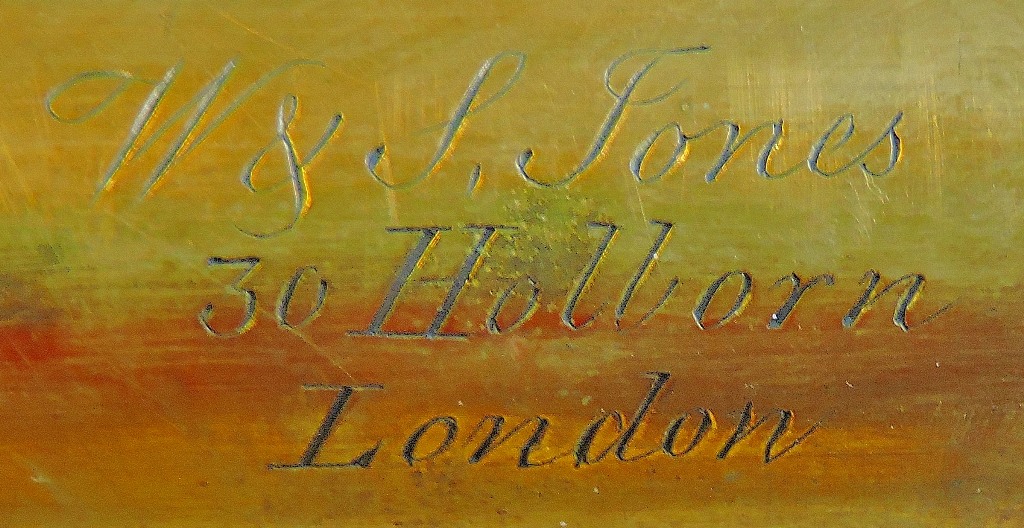 W & S, Jones
30 Holborn
London